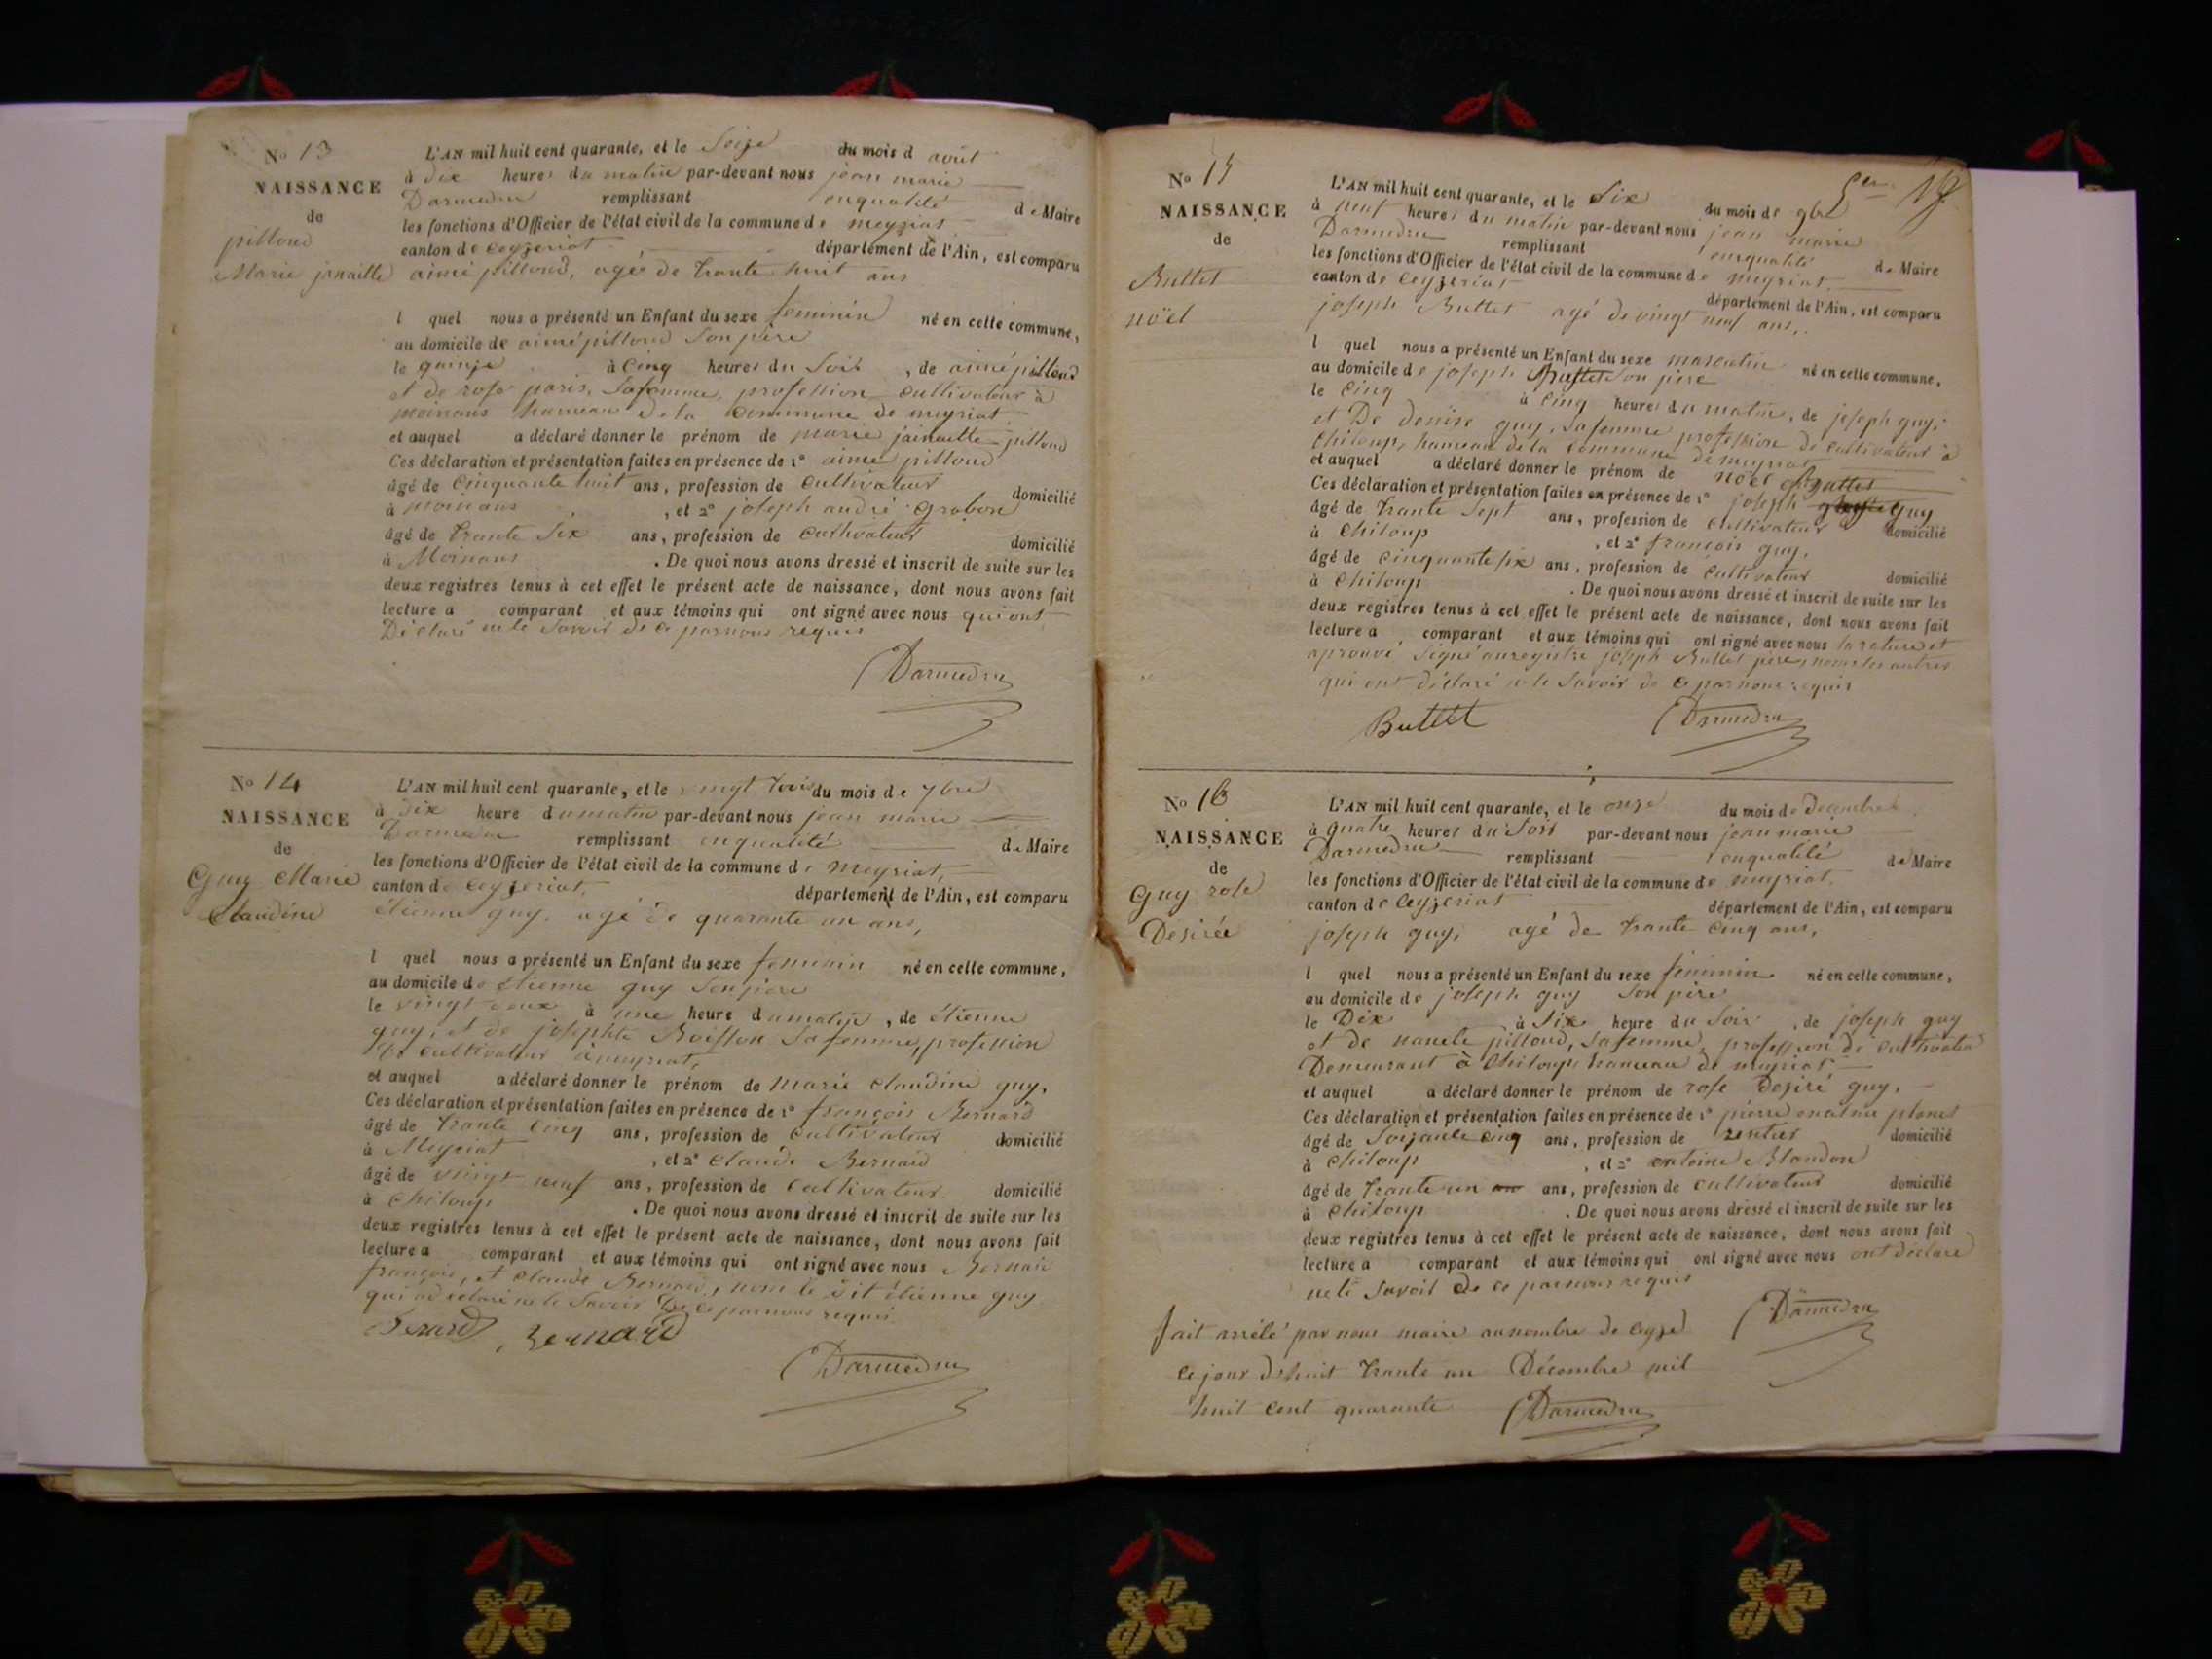 No 13
NAISSANCE
de
pilloud
Marie janaille
L'AN mil huit cent quarante, et le Seize du mois d août
à dix heures du matin par-devant nous jean marie
Darmedru remplissant enqualité de Maire
les fonctions d'Officier de l'état civil de la commune de meyriat
canton de ceyzeriat département de l'Ain, est comparu
aimé pilloud, agé de trante huit ans
l quel nous a présenté un Enfant du sexe feminin né en cette commune,
au domicile de aimé pilloud Son père
le quinze à cinq heures du Soir, de aimé pilloud
et de rose paris, Safemme, profession cultivateur à
moinans hameau de la commune de meyriat
et auquel a déclaré donner le prénom de marie jainaille pilloud
Ces déclaration et présentation faites en présence de 1° aimé pilloud
âgé de Cinquante huit ans, profession de cultivateur domicilié
à moinans, et 2° joseph andré Grabon
âgé de trante Six ans, profession de cultivateur domicilié
à Moinans. De quoi nous avons dressé et inscrit de suite sur les
deux registres tenus à cet effet le présent acte de naissance, dont nous avons fait
lecture a comparant et aux témoins qui ont signé avec nous qui ont
Déclaré ne le Savoir de ce parnous requis
Darmedru
No 14
NAISSANCE
de
Guy Marie
Claudine
L'AN mil huit cent quarante, et le vingt trois du mois de 7bre
à dix heure du matin par-devant nous jean marie
Darmedru remplissant enqualité de Maire
les fonctions d'Officier de l'état civil de la commune de meyriat,
canton de ceyzeriat, département de l'Ain, est comparu
étienne guy, agé de quarante un ans,
l quel nous a présenté un Enfant du sexe feminin né en cette commune,
au domicile de étienne guy Son père
le vingt deux à une heure du matin, de étienne
guy, et de josephte Boisson Safemme, profession
de cultivateur à meyriat,
et auquel a déclaré donner le prénom de marie claudine guy,
Ces déclaration et présentation faites en présence de 1° françois Bernard
âgé de trante cinq ans, profession de cultivateur domicilié
à Meyriat, et 2° Claude Bernard
âgé de vingt neuf ans, profession de cultivateur domicilié
à Chiloup. De quoi nous avons dressé et inscrit de suite sur les
deux registres tenus à cet effet le présent acte de naissance, dont nous avons fait
lecture a comparant et aux témoins qui ont signé avec nous Bernard
françois, et Claude Bernard, nom le dit étienne guy
qui ad éclaré ne le Savoir de ce parnous requis
Bernard
Darmedru
No 15
NAISSANCE
de
Buttet
noël
L'AN mil huit cent quarante, et le Six du mois de 9bre
à neuf heures du matin par-devant nous jean marie
Darmedru remplissant enqualité de Maire
les fonctions d'Officier de l'état civil de la commune de meyriat
canton de ceyzeriat département de l'Ain, est comparu
joseph Buttet agé de vingt neuf ans,
l quel nous a présenté un Enfant du sexe masculin né en cette commune,
au domicile de joseph Buttet Son père
le Cinq à cinq heures du matin, de joseph guy,
et De denise guy, Safemme profession de cultivateur à
Chiloup, hameau de la commune de meyriat
et auquel a déclaré donner le prénom de noël Buttet
Ces déclaration et présentation faites en présence de 1° joseph guy
âgé de trante Sept ans, profession de cultivateur domicilié
à Chiloup, et 2° françois guy,
âgé de cinquante six ans, profession de cultivateur domicilié
à Chiloup. De quoi nous avons dressé et inscrit de suite sur les
deux registres tenus à cet effet le présent acte de naissance, dont nous avons fait
lecture a comparant et aux témoins qui ont signé avec nous la rature et
aprouvé Signé auregistre joseph Buttet père, nom les autres
qui ont déclaré ne le Savoir de ce parnous requis
Buttet Darmedru
No 16
NAISSANCE
de
Guy rose
Desirée
L'AN mil huit cent quarante, et le onze du mois de Decembre
à quatre heures du Soir par-devant nous jean marie
Darmedru remplissant enqualité de Maire
les fonctions d'Officier de l'état civil de la commune de meyriat
canton de ceyzeriat département de l'Ain, est comparu
joseph guy, agé de trante cinq ans,
l quel nous a présenté un Enfant du sexe feminin né en cette commune,
au domicile de joseph guy Son père
le Dix à Six heure du Soir, de joseph guy
et de nanete pilloud, Safemme, profession de cultivateur
Demeurant à Chiloup hameau de meyriat
et auquel a déclaré donner le prénom de rose Desiré guy,
Ces déclaration et présentation faites en présence de 1° pierre planet
âgé de Soixante cinq ans, profession de rentier domicilié
à Chiloup, et 2° antoine Blandon
âgé de trante un ans, profession de cultivateur domicilié
à Chiloup. De quoi nous avons dressé et inscrit de suite sur les
deux registres tenus à cet effet le présent acte de naissance, dont nous avons fait
lecture a comparant et aux témoins qui ont signé avec nous ont déclaré
nele Savoir de ce parnous requis
Darmedru
fait arrêlé par nous maire aunombre de
ce jour d'huit trante un Décembre mil
huit Cent quarante Darmedru